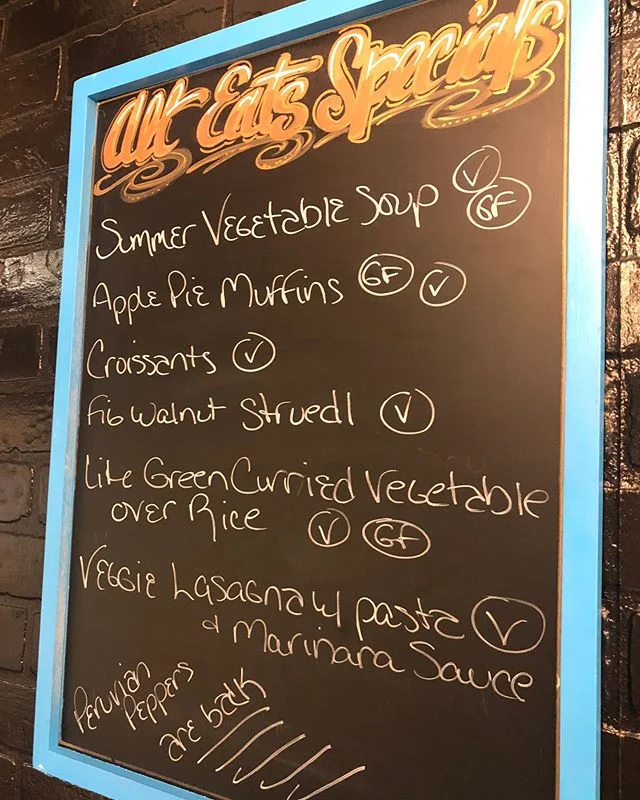 Alt Eats Specials
Summer Vegetable Soup V GF
Apple Pie Muffins GF V
Croissants V
Fig Walnut Struedl V
Lite Green Curried Vegetable
over Rice V GF
Veggie Lasagna w/ pasta V
& Marinara Sauce
Peruvian
Peppers
are back